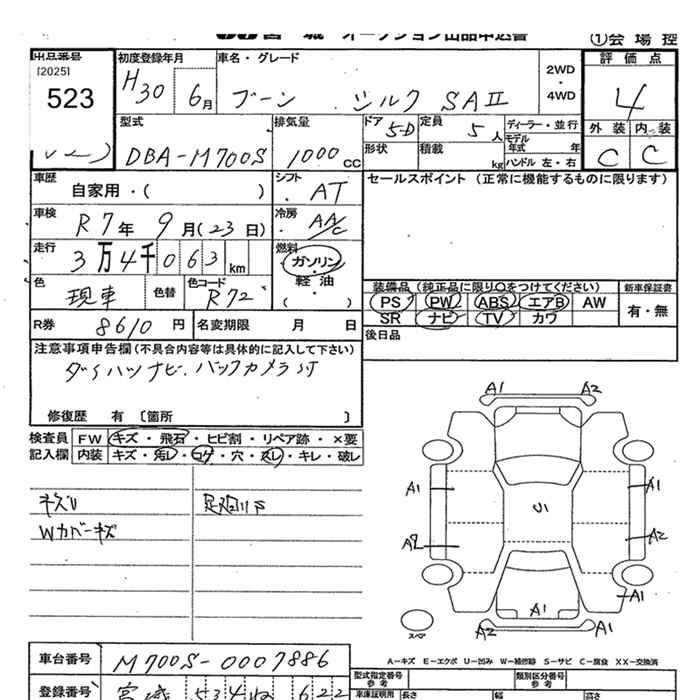 宮 城 オークション出品申込書
①会 場 控
出品番号
[2025]
523
初度登録年月
H30 6月
車名・グレード
ブーン シルク SAⅡ
2WD
・
4WD
評 価 点
4
外 装 内 装
C C
型式
DBA-M700S
排気量
1000cc
ドア 5-D
形状
定員 5人
積載 kg
ディーラー・並行
モデル
年式 年
ハンドル 左・右
車歴
自家用・( )
シフト
AT
車検
R7年 9月(23日)
冷房
AA/C
走行
3万4千063km
燃料
ガソリン
・
軽 油
・( )
色
現車
色替
色コード
R72
R券 8610 円
名変期限 月 日
セールスポイント (正常に機能するものに限ります)
装備品 (純正品に限り○をつけてください)
PS PW ABS エアB AW
SR ナビ TV カワ
新車保証書
有・無
後日品
注意事項申告欄 (不具合内容等は具体的に記入して下さい)
ダイハツナビ. バックカメラ付
修復歴 有 〔箇所 〕
検査員
記入欄
FW キズ・飛石・ヒビ割・リペア跡・×要
内装 キズ・汚レ・コゲ・穴・スレ・キレ・破レ
キズU
Wカバーキズ
A1 A2
A1 A1
U1
A2 A2
A1
A1
A2 A1
スペア
A-キズ E-エクボ U-凹み W-補修跡 S-サビ C-腐食 XX-交換済
車台番号
M700S-0007886
登録番号
宮城 534 622
型式指定番号
参考
類別区分番号
参考
車庫証明用
長さ 幅 高さ